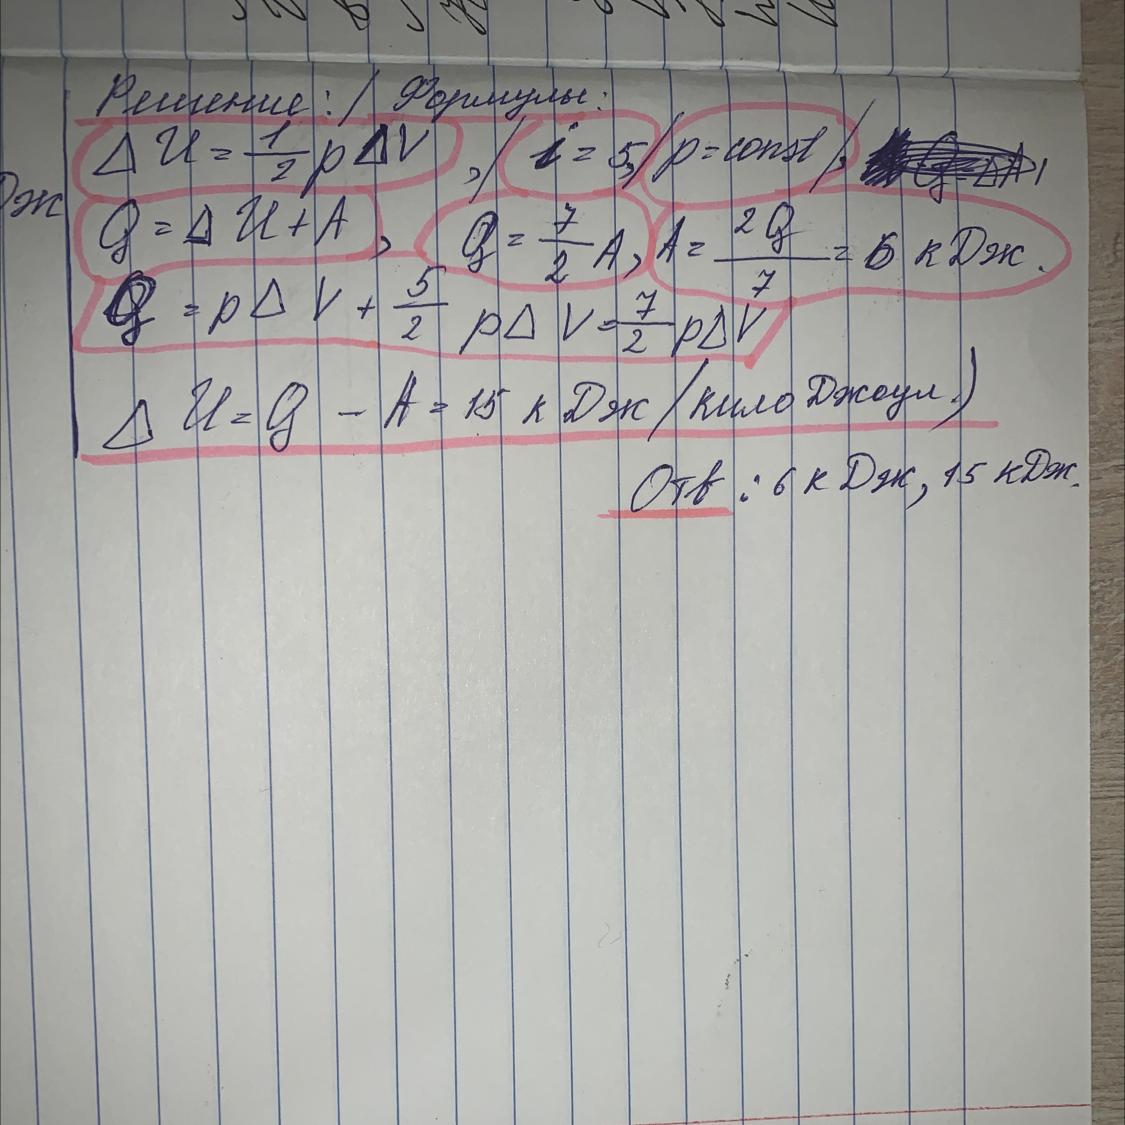 Решение: / Формулы:
ΔU = 1/2 p ΔV, / i = 5, / p = const /,
Дж
Q = ΔU + A, Q = 7/2 A, A = 2Q/7 = 6 кДж.
Q = pΔV + 5/2 pΔV = 7/2 pΔV
ΔU = Q - A = 15 кДж (килоДжоул.)
Отв: 6 кДж, 15 кДж.